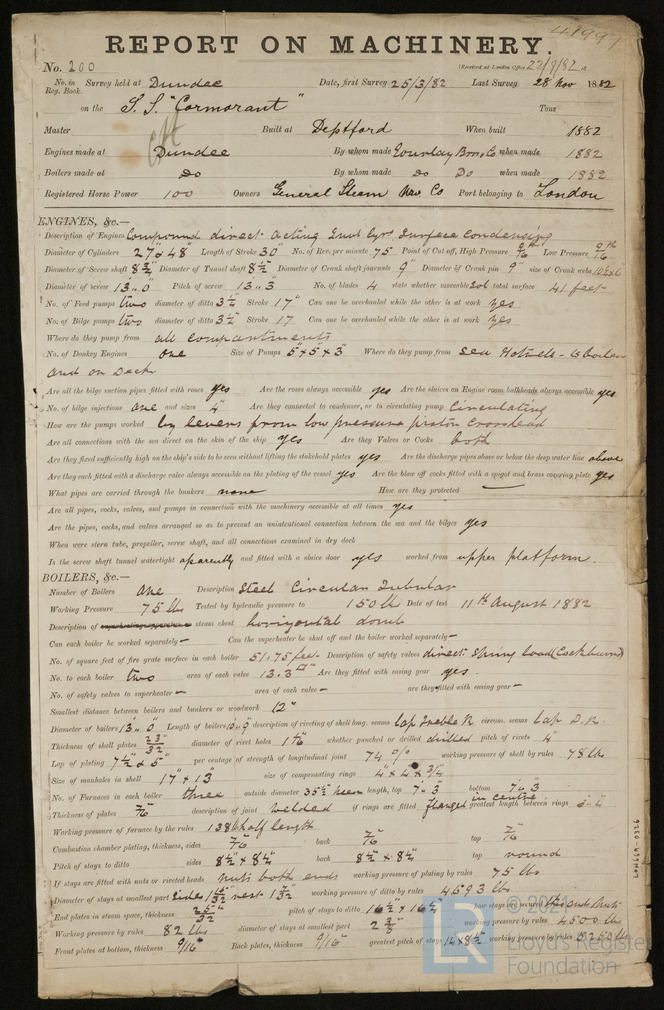 41991
REPORT ON MACHINERY.
No. 200 (Received at London Office 22/9/82
No. in Reg. Book. Survey held at Dundee Date, first Survey 25/3/82 Last Survey 28 Nov 1882
on the S.S. "Cormorant" Tons
Master Built at Deptford When built 1882
Engines made at Dundee By whom made Gourlay Bros & Co when made 1882
Boilers made at Do By whom made Do Do when made 1882
Registered Horse Power 100 Owners General Steam Nav Co Port belonging to London
ENGINES, &c.—
Description of Engines Compound direct acting Invt Cyrs Surface Condensing
Diameter of Cylinders 27" & 48" Length of Stroke 30" No. of Rev. per minute 75 Point of Cut off, High Pressure Low Pressure
Diameter of Screw shaft 8½ Diameter of Tunnel shaft 8½ Diameter of Crank shaft journals 9" Diameter of Crank pin 9" size of Crank webs
Diameter of screw 13..0" Pitch of screw 13..3 No. of blades 4 state whether moveable total surface 41 feet
No. of Feed pumps two diameter of ditto 3½ Stroke 17" Can one be overhauled while the other is at work yes
No. of Bilge pumps two diameter of ditto 3½ Stroke 17 Can one be overhauled while the other is at work yes
Where do they pump from all compartments
No. of Donkey Engines one Size of Pumps 5" x 5 x 3" Where do they pump from sea Hotwell - to boiler
and on Deck
Are all the bilge suction pipes fitted with roses yes Are the roses always accessible yes Are the sluices on Engine room bulkheads always accessible yes
No. of bilge injections one and sizes 4" Are they connected to condenser, or to circulating pump Circulating
How are the pumps worked by levers from low pressure piston crosshead
Are all connections with the sea direct on the skin of the ship yes Are they Valves or Cocks both
Are they fixed sufficiently high on the ship's side to be seen without lifting the stokehold plates yes Are the discharge pipes above or below the deep water line above
Are they each fitted with a discharge valve always accessible on the plating of the vessel yes Are the blow off cocks fitted with a spigot and brass covering plate yes
What pipes are carried through the bunkers none How are they protected —
Are all pipes, cocks, valves, and pumps in connection with the machinery accessible at all times yes
Are the pipes, cocks, and valves arranged so as to prevent an unintentional connection between the sea and the bilges yes
When were stern tube, propeller, screw shaft, and all connections examined in dry dock
Is the screw shaft tunnel watertight apparently and fitted with a sluice door yes worked from upper platform.
BOILERS, &c.—
Number of Boilers One Description Steel Circular Tubular
Working Pressure 75 lbs Tested by hydraulic pressure to 150 lb Date of test 11th August 1882
Description of steam chest horizontal dome
Can each boiler be worked separately – Can the superheater be shut off and the boiler worked separately –
No. of square feet of fire grate surface in each boiler 51.75 feet Description of safety valves direct Spring load (Cockburn)
No. to each boiler two area of each valve 13.3 Are they fitted with easing gear yes.
No. of safety valves to superheater – area of each valve – are they fitted with easing gear –
Smallest distance between boilers and bunkers or woodwork 12"
Diameter of boilers 13..0" Length of boilers description of riveting of shell long. seams Lap Treble R circum. seams Lap D.R.
Thickness of shell plates 23/32" diameter of rivet holes whether punched or drilled drilled pitch of rivets 4"
Lap of plating 7½" & 5" per centage of strength of longitudinal joint 74 % working pressure of shell by rules 78 lbs
Size of manholes in shell 17" x 13" size of compensating rings 4" x 4" x 3/4"
No. of Furnaces in each boiler three outside diameter 35½" length, top 7..3 bottom 7..3
Thickness of plates description of joint welded if rings are fitted flanged in centre greatest length between rings
Working pressure of furnace by the rules 138 lb half length
Combustion chamber plating, thickness, sides 7/16 back 7/16 top 7/16
Pitch of stays to ditto sides 8½" x 8¼" back 8½" x 8¼" top round
If stays are fitted with nuts or riveted heads nuts both ends working pressure of plating by rules 75 lb
Diameter of stays at smallest part working pressure of ditto by rules 4693 lbs
End plates in steam space, thickness 25/32" pitch of stays to ditto how stays are secured
Working pressure by rules 82 lbs diameter of stays at smallest part working pressure by rules 4500 lbs
Front plates at bottom, thickness 9/16" Back plates, thickness 9/16" greatest pitch of stays working pressure by rules
LONGER-0326
© 2021
LR
Lloyd's Register
Foundation